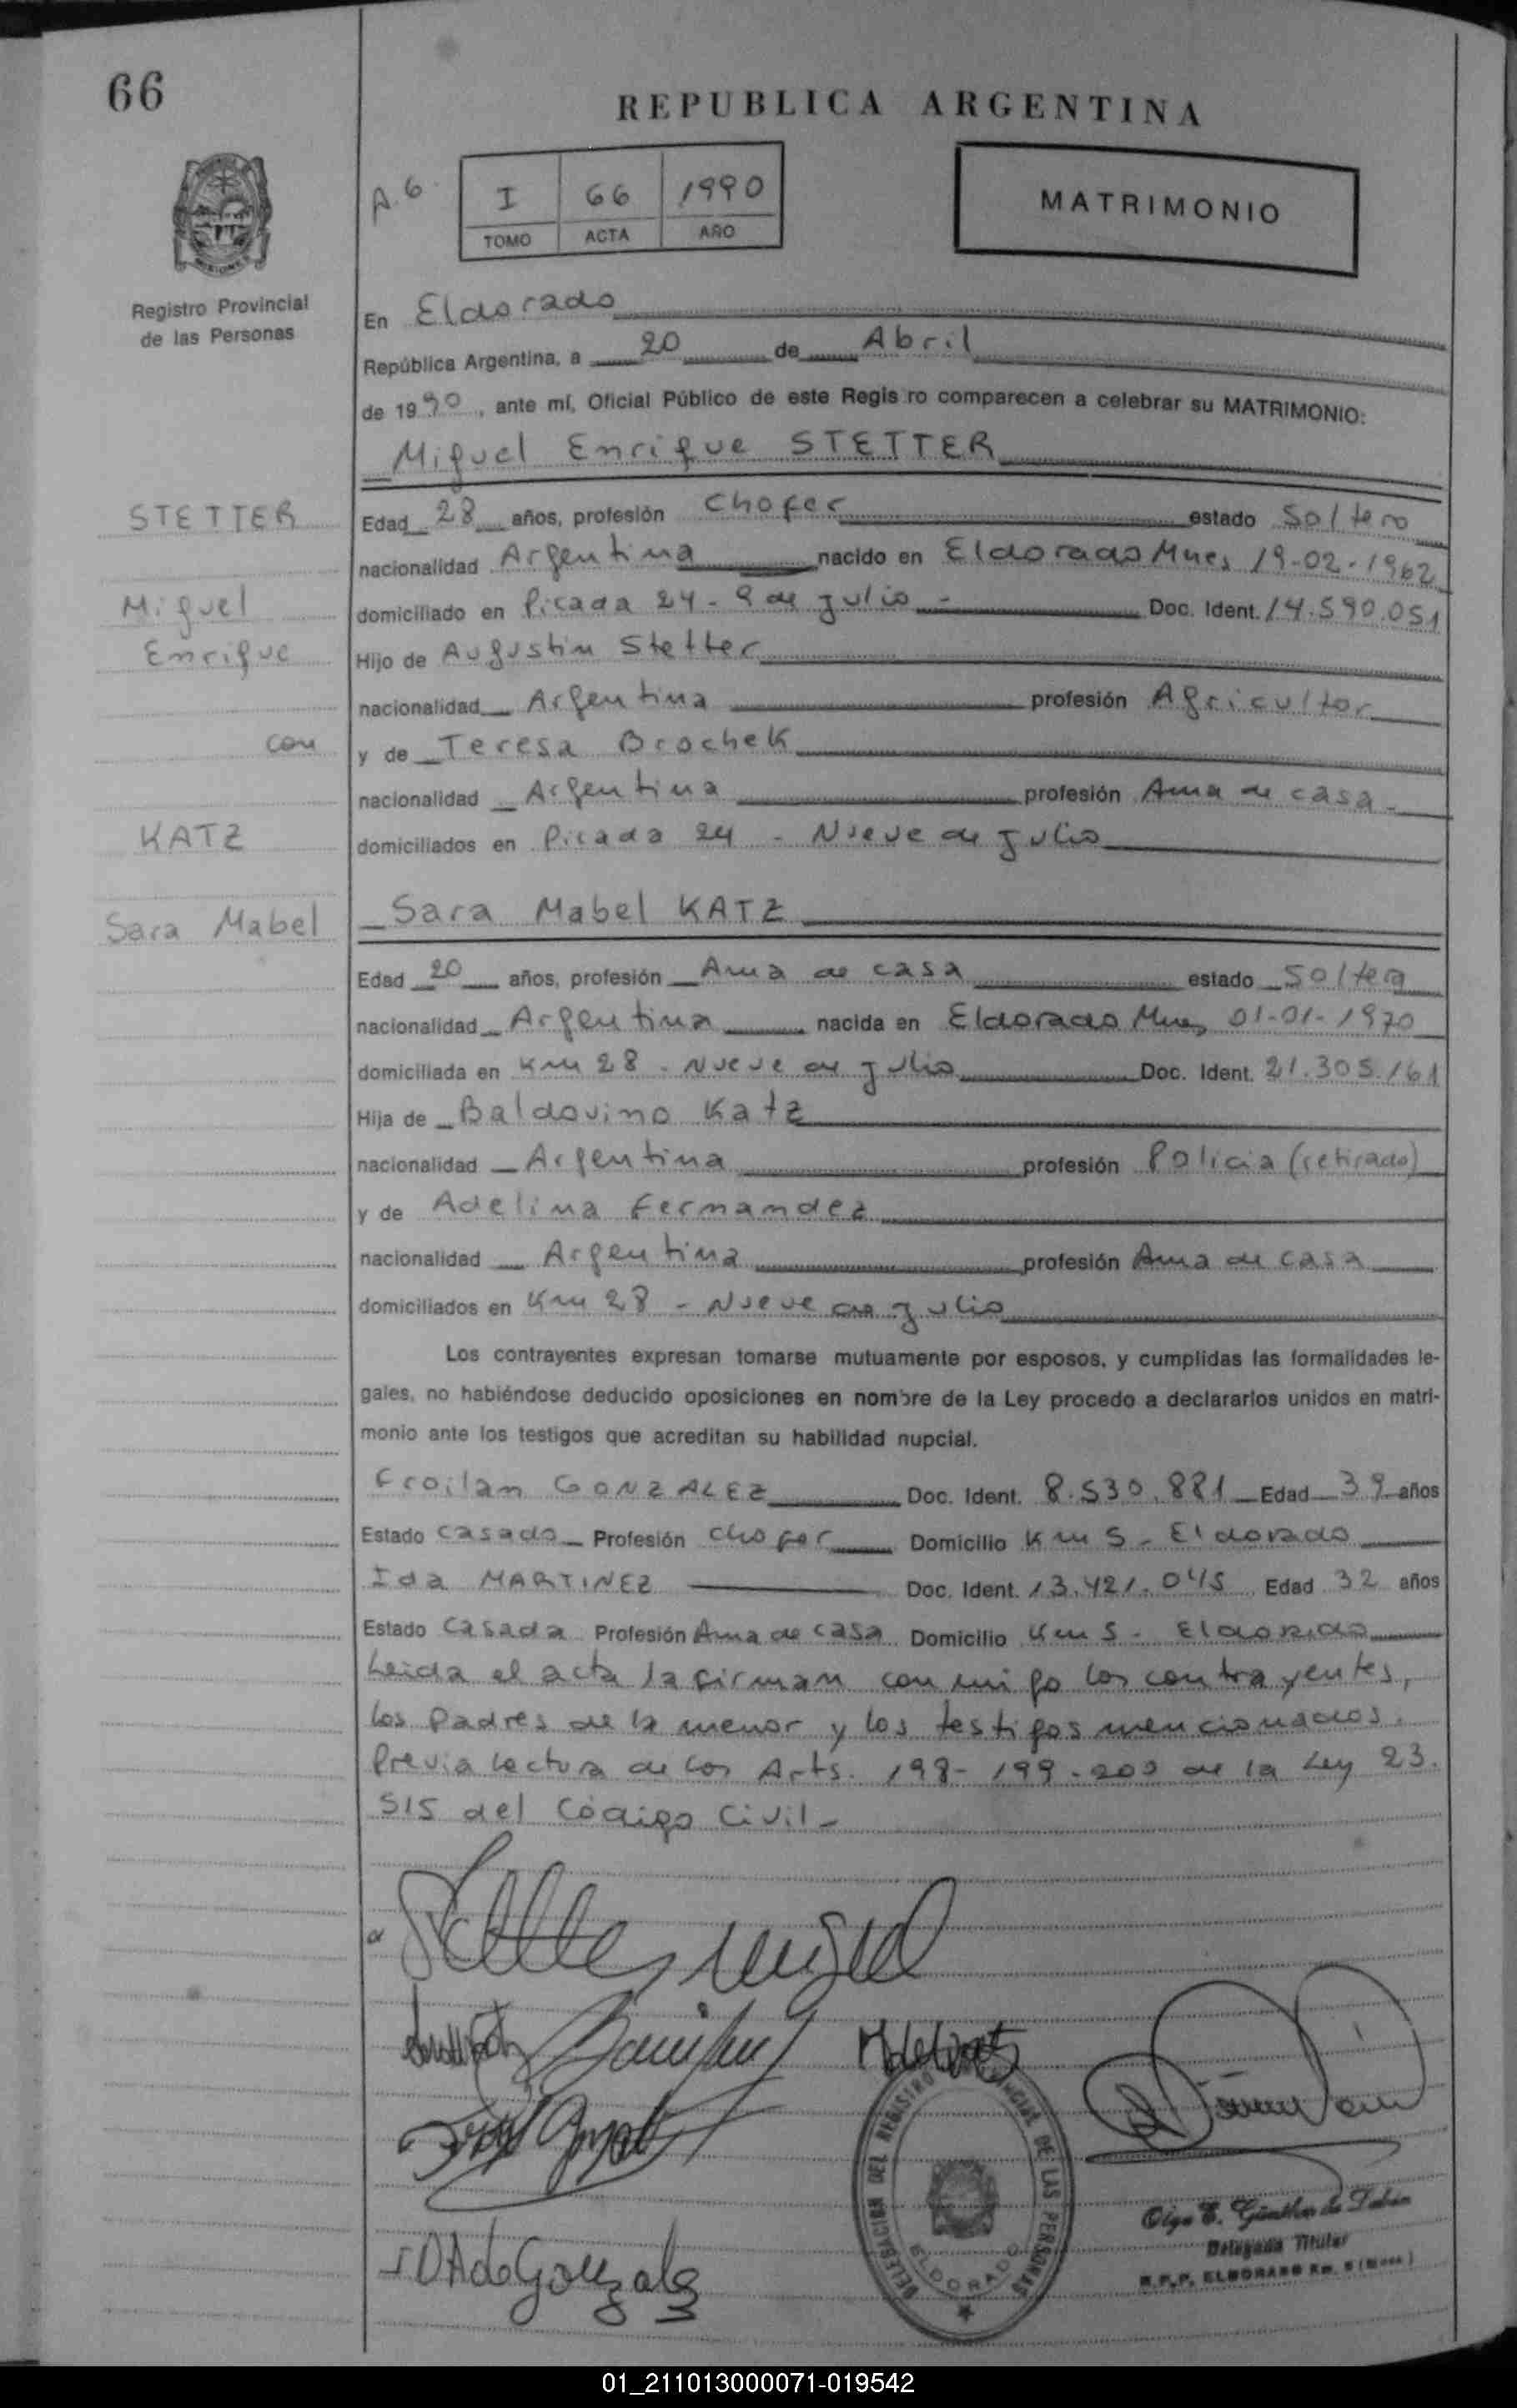 66
REPUBLICA ARGENTINA
A.6.
I 66 1990
TOMO ACTA AÑO
MATRIMONIO
MISIONES
Registro Provincial
de las Personas
En Eldorado
República Argentina, a 20 de Abril
de 1990, ante mí, Oficial Público de este Regis ro comparecen a celebrar su MATRIMONIO:
Miguel Enrique STETTER
STETTER
Edad 28 años, profesión Chofer estado Soltero
nacionalidad Argentina nacido en Eldorado Mnes 19-02-1962
Miguel
domiciliado en Picada 24 - 9 de Julio - Doc. Ident. 14.590.051
Enrique
Hijo de Augustin Stetter
nacionalidad Argentina profesión Agricultor
con
y de Teresa Brochek
nacionalidad Argentina profesión Ama de casa -
KATZ
domiciliados en Picada 24 - Nueve de Julio
Sara Mabel
Sara Mabel KATZ
Edad 20 años, profesión Ama de casa estado Soltera
nacionalidad Argentina nacida en Eldorado Mnes 01-01-1970
domiciliada en Km 28 - Nueve de Julio Doc. Ident. 21.305.161
Hija de Baldovino Katz
nacionalidad Argentina profesión Policia (retirado)
y de Adelina Fernandez
nacionalidad Argentina profesión Ama de casa
domiciliados en Km 28 - Nueve de Julio
Los contrayentes expresan tomarse mutuamente por esposos, y cumplidas las formalidades le-
gales, no habiéndose deducido oposiciones en nombre de la Ley procedo a declararlos unidos en matri-
monio ante los testigos que acreditan su habilidad nupcial.
Froilan GONZALEZ Doc. Ident. 8.530.881 Edad 39 años
Estado casado Profesión chofer Domicilio Km 5 - Eldorado
Ida MARTINEZ Doc. Ident. 13.421.045 Edad 32 años
Estado Casada Profesión Ama de casa Domicilio Km 5 - Eldorado
Leida el acta la firman con migo los contrayentes,
los Padres de la menor y los testigos mencionados.
Previa lectura de los Arts. 198- 199-200 de la Ley 23.
515 del Código Civil -
Stetter Miguel
IDA de Gonzalez
DELEGACION DEL REGISTRO PROVINCIAL DE LAS PERSONAS
ELDORADO
Olga E. Günther de
Delegada Titular
R.P.P. ELDORADO Km. 5 (Mnes)
01_211013000071-019542